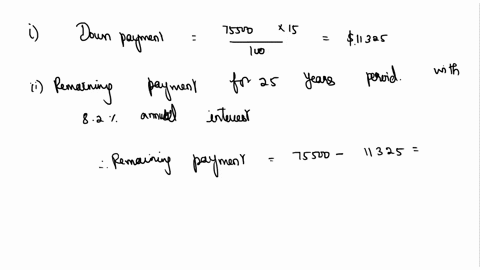 i) Down payment = 75500 × 15 / 100 = $11325
ii) Remaining payment for 25 years period. with
8.2% annual interest
∴ Remaining payment = 75500 - 11325 =